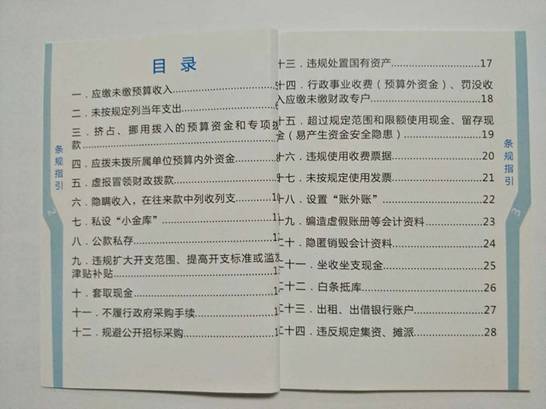 目 录
一．应缴未缴预算收入
二．未按规定列当年支出
三．挤占、挪用拨入的预算资金和专项拨
款
四．应拨未拨所属单位预算内外资金
五．虚报冒领财政拨款
六．隐瞒收入，在往来款中列收列支
七．私设“小金库”
八．公款私存
九．违规扩大开支范围、提高开支标准或滥发
津贴补贴
十．套取现金
十一．不履行政府采购手续
十二．规避公开招标采购
条规指引
2
十三．违规处置国有资产 17
十四．行政事业收费（预算外资金）、罚没收
入应缴未缴财政专户 18
十五．超过规定范围和限额使用现金、留存现
金（易产生资金安全隐患） 19
十六．违规使用收费票据 20
十七．未按规定使用发票 21
十八．设置“账外账” 22
十九．编造虚假账册等会计资料 23
二十．隐匿销毁会计资料 24
二十一．坐收坐支现金 25
二十二．白条抵库 26
二十三．出租、出借银行账户 27
二十四．违反规定集资、摊派 28
条规指引
3